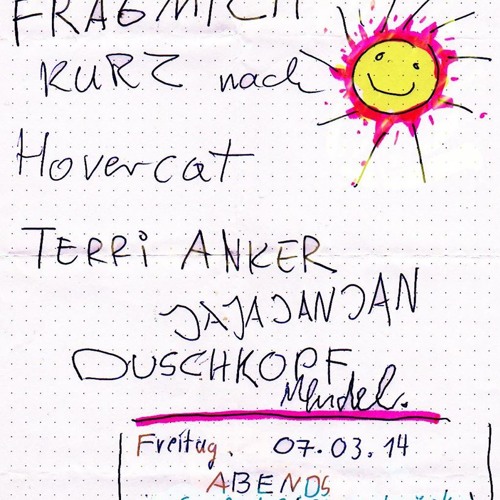 FRAGMICH
KURZ nach
Hovercat
TERRI ANKER
JAJAJANJAN
DUSCHKOPF
Mendel.
Freitag. 07.03.14
ABENDS